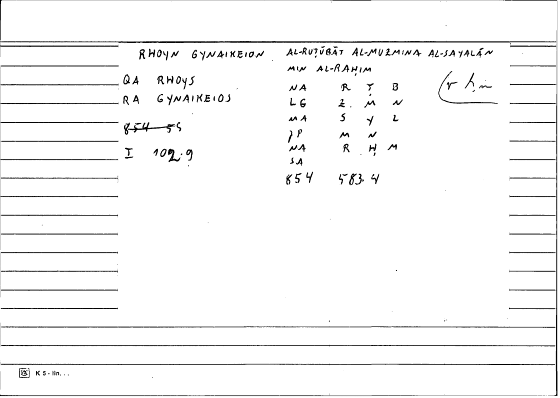 RHOYN GYNAIKEION
QA RHOYS
RA GYNAIKEIOS
I 102.9
AL-RUṬŪBĀT AL-MUZMINA AL-SAYALĀN
MIN AL-RAḤIM
NA R Ṭ B
LG Z M N
MA S Y L
JP M N
NA R Ḥ M
SA
854 583.4
r ḥ m
K 5 - lin. . .